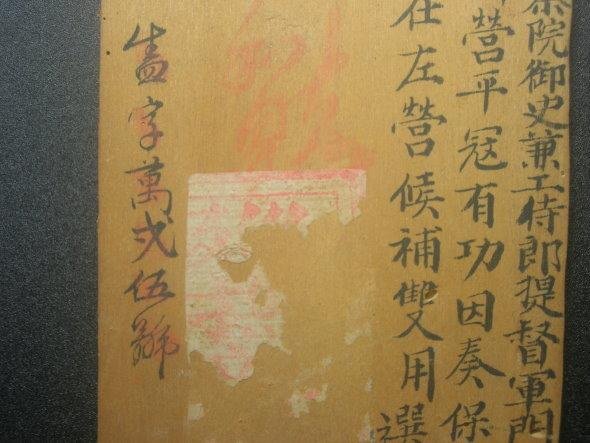 院御史兼工侍郎提督軍門
營平冦有功因奏保
在左營候補雙用選
字萬弍伍號